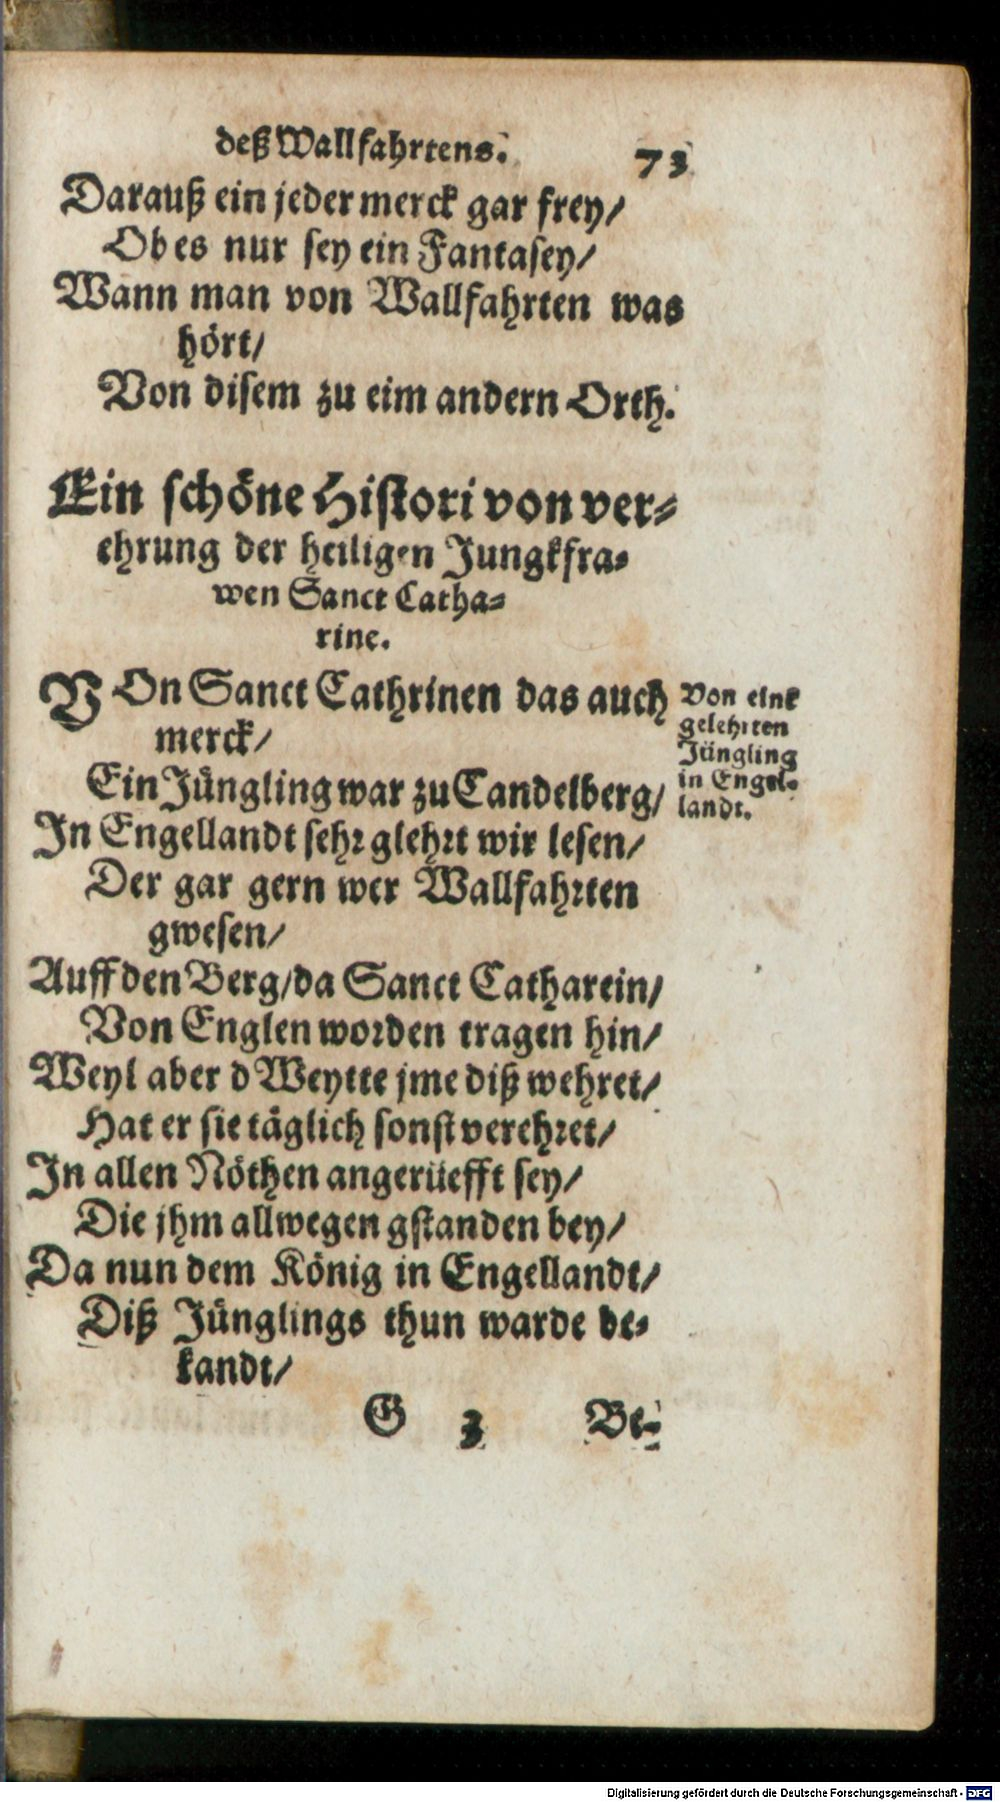 deß Wallfahrtens. 73
Darauß ein jeder merck gar frey/
Ob es nur sey ein Fantasey/
Wann man von Wallfahrten was
hört/
Von disem zu eim andern Orth.
Ein schöne Histori von ver-
ehrung der heiligen Jungkfra-
wen Sanct Catha-
rine.
VOn Sanct Cathrinen das auch
merck/
Ein Jüngling war zu Candelberg/
In Engellandt sehr glehrt wir lesen/
Der gar gern wer Wallfahrten
gwesen/
Auff den Berg/da Sanct Catharein/
Von Englen worden tragen hin/
Weyl aber d Weytte jme diß wehret/
Hat er sie täglich sonst verehret/
In allen Nöthen angerüefft sey/
Die jhm allwegen gstanden bey/
Da nun dem König in Engellandt/
Diß Jünglings thun warde be-
kandt/
G 3 Be-
Von eine
gelehrten
Jüngling
in Engel-
landt.
Digitalisierung gefördert durch die Deutsche Forschungsgemeinschaft - DFG